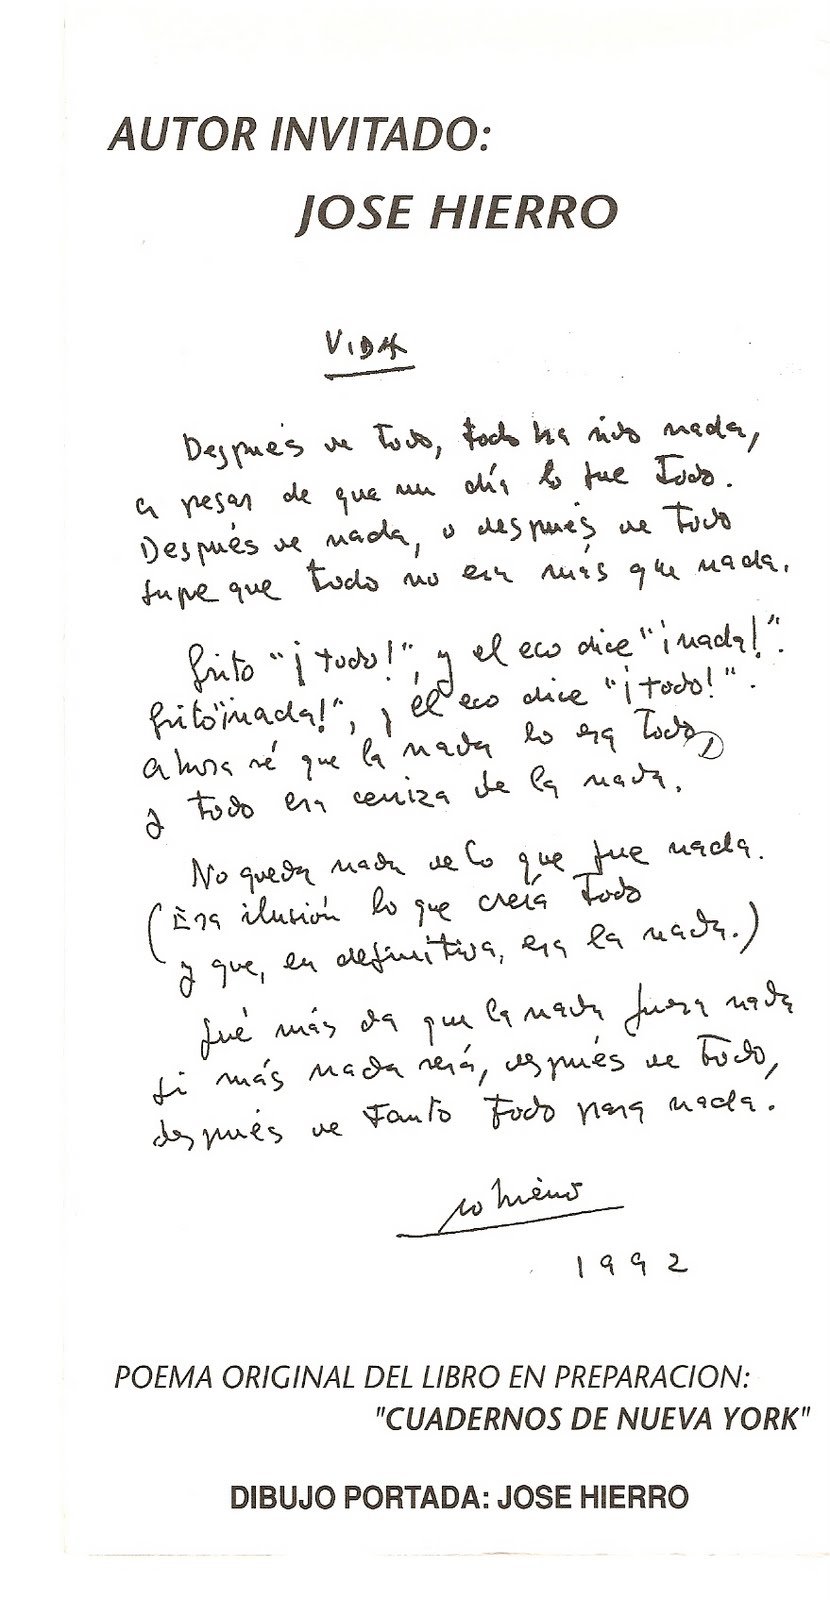 AUTOR INVITADO:
JOSE HIERRO
VIDA
Después de todo, todo ha sido nada,
a pesar de que un día lo fue todo.
Después de nada, o después de todo
supe que todo no era más que nada.
Grito "¡todo!", y el eco dice "¡nada!".
Grito "¡nada!", y el eco dice "¡todo!".
Ahora sé que la nada lo era todo,
y todo era ceniza de la nada.
No queda nada de lo que fue nada.
(Era ilusión lo que creía todo
y que, en definitiva, era la nada.)
Qué más da que la nada fuera nada
si más nada será, después de todo,
después de tanto todo para nada.
Hierro
1992
POEMA ORIGINAL DEL LIBRO EN PREPARACION:
"CUADERNOS DE NUEVA YORK"
DIBUJO PORTADA: JOSE HIERRO